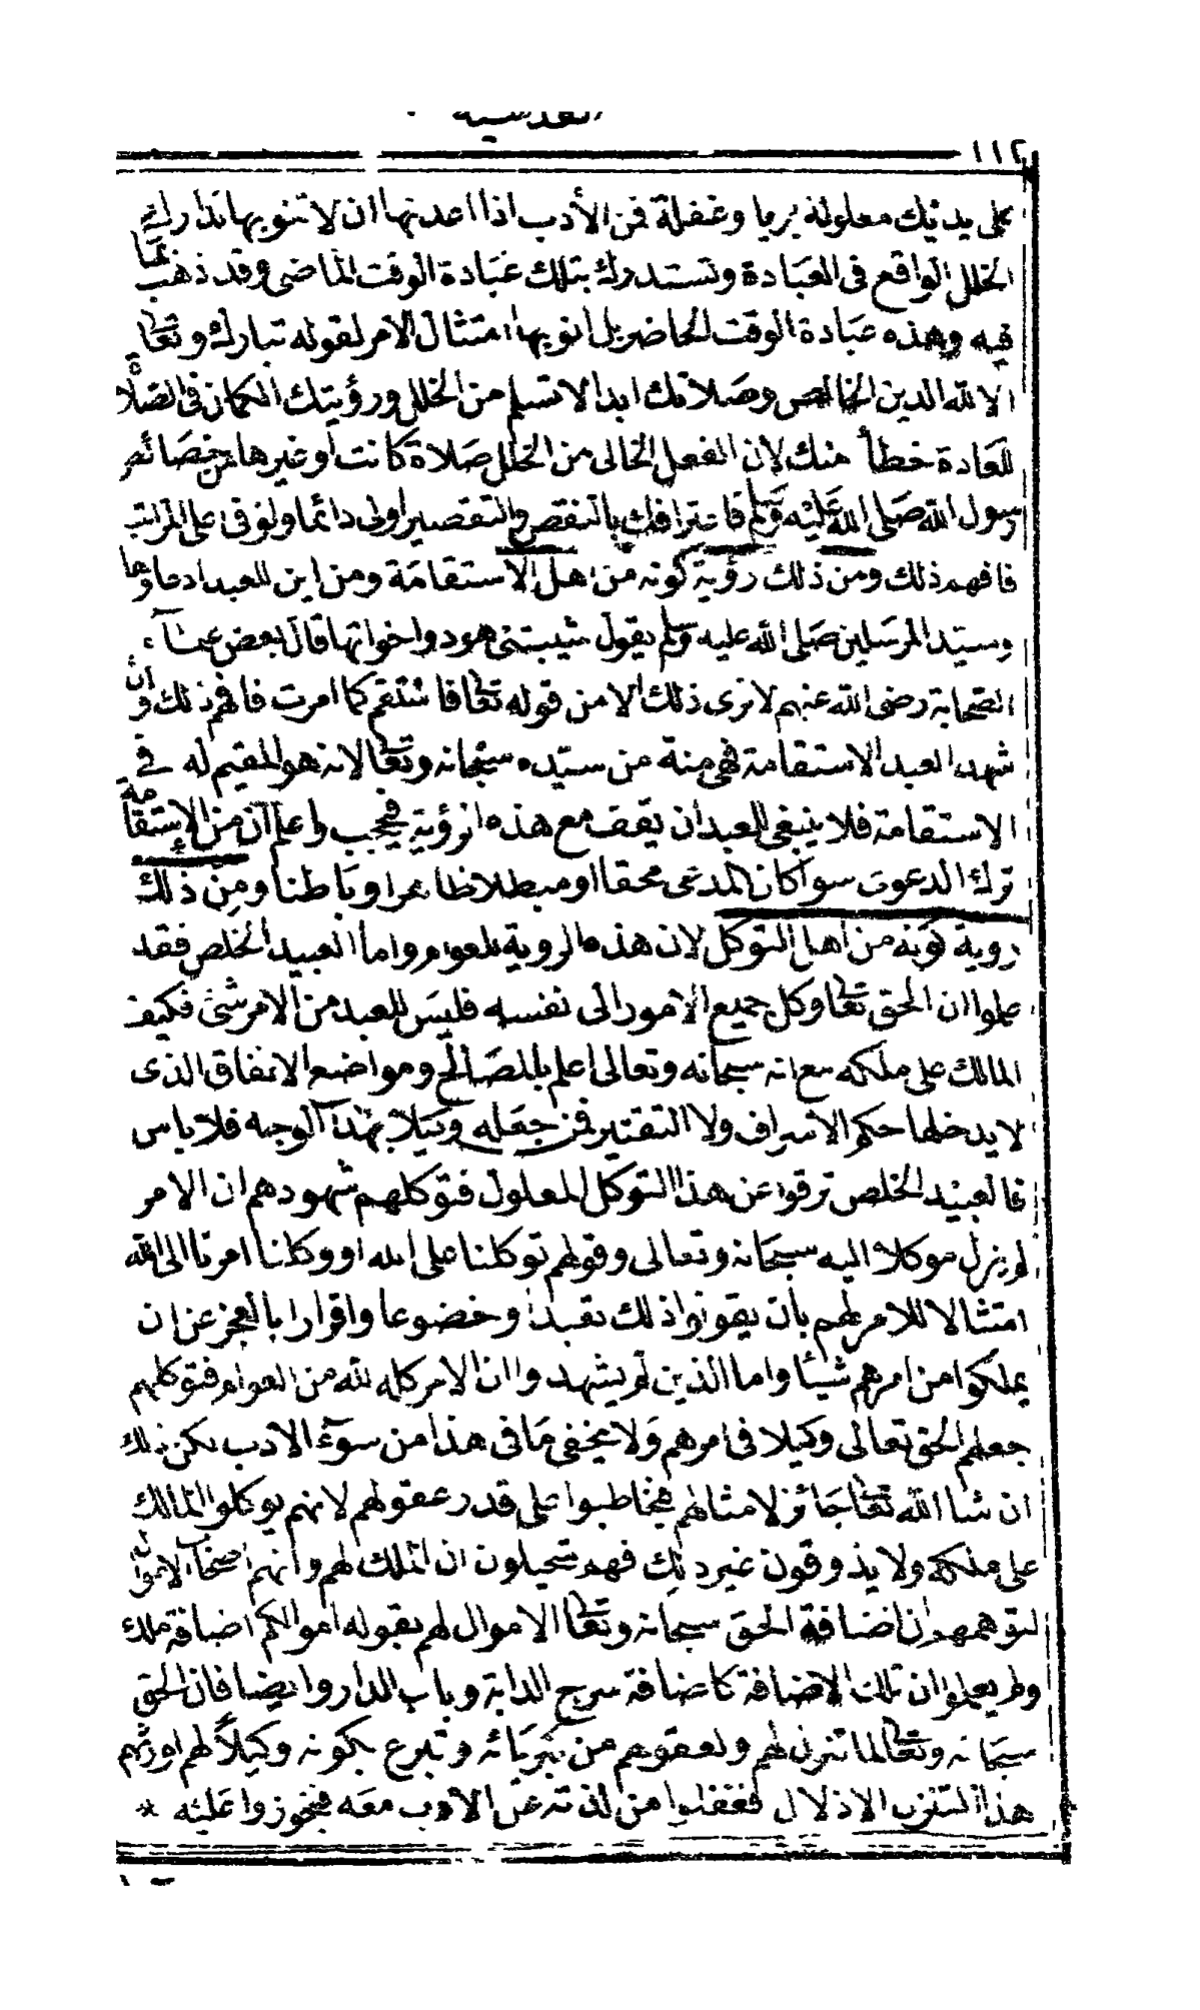 القدسية
١١٢
على يديك معلولة برياء وغفلة فمن الأدب اذا اعدتها ان لا تنويها تدارك
الخلل الواقع فى العبادة وتستدرك بتلك عبادة الوقت الماضى وقد ذهب بما
فيه وهذه عبادة الوقت الحاضر بل انويها امتثال الامر لقوله تبارك وتعا
الا لله الدين الخالص وصلاتك ابدا لا تسلم من الخلل ورؤيتك الكمال فى الصلا
للعادة خطأ منك لان الفعل الخالى من الخلل صلاة كانت او غيرها من خصائص
رسول الله صلى الله عليه وسلم فاعترافك بالنقص والتقصير اولى دائما ولو فى اعلى المراتب
فافهم ذلك ومن ذلك رؤية كونه من اهل الاستقامة ومن اين للعبد ادعاوها
وسيد المرسلين صلى الله عليه وسلم يقول شيبتنى هود واخواتها قال بعض علماء
الصحابة رضى الله عنهم لا نرى ذلك الا من قوله تعا فاستقم كما امرت فافهم ذلك وان
شهد العبد الاستقامة فهى منة من سيده سبحانه وتعا لانه هو المقيم له فى
الاستقامة فلا ينبغى للعبد ان يقف مع هذه الرؤية فيحجب واعلم ان من الاستقامة
ترك الدعوى سوا كان المدعى محقا او مبطلا ظاهرا وباطنا ومن ذلك
روية كونه من اهل التوكل لان هذه الروية للعوام واما العبيد الخلص فقد
علموا ان الحق تعا وكل جميع الامور الى نفسه فليس للعبد من الامر شئ فكيف
المالك على ملكه مع انه سبحانه وتعالى اعلم بالمصالح ومواضع الانفاق الذى
لا يدخلها حكم الاسراف ولا التقتير فمن جعله وكيلا بهذا الوجه فلا باس
فالعبيد الخلص ترقوا عن هذا التوكل المعلول فتوكلهم شهودهم ان الامر
لم يزل موكلا اليه سبحانه وتعالى وقولهم توكلنا على الله او وكلنا امرنا الى الله
امتثالا للامر لهم بان يقولوا ذلك تعبدا وخضوعا واقرارا بالعجز عن ان
يملكوا من امرهم شيئا واما الذين لم يشهدوا ان الامر كله لله من العوام فتوكلهم
جعلهم الحق تعالى وكيلا فى امرهم ولا يخفى ما فى هذا من سوء الادب لكن ذلك
ان شا الله تعا جائز لامثالهم فخاطبوا على قدر عقولهم لانهم يوكلوا المالك
على ملكه ولا يذوقون غير ذلك فهم يتحيلون ان الملك لهم وانهم اصحاب الاموال
لتوهمهم ان اضافة الحق سبحانه وتعا الاموال لهم بقوله اموالكم اضافة ملك
ولم يعلموا ان تلك الاضافة كاضافة سرج الدابة وباب الدار وايضا فان الحق
سبحانه وتعا لما تنزل لهم ولعقولهم من كبريائه وتبرع بكونه وكيلا لهم اورثهم
هذا التنزل الاذلال فغفلوا من لذته عن الادب معه فيخوزوا عليه *